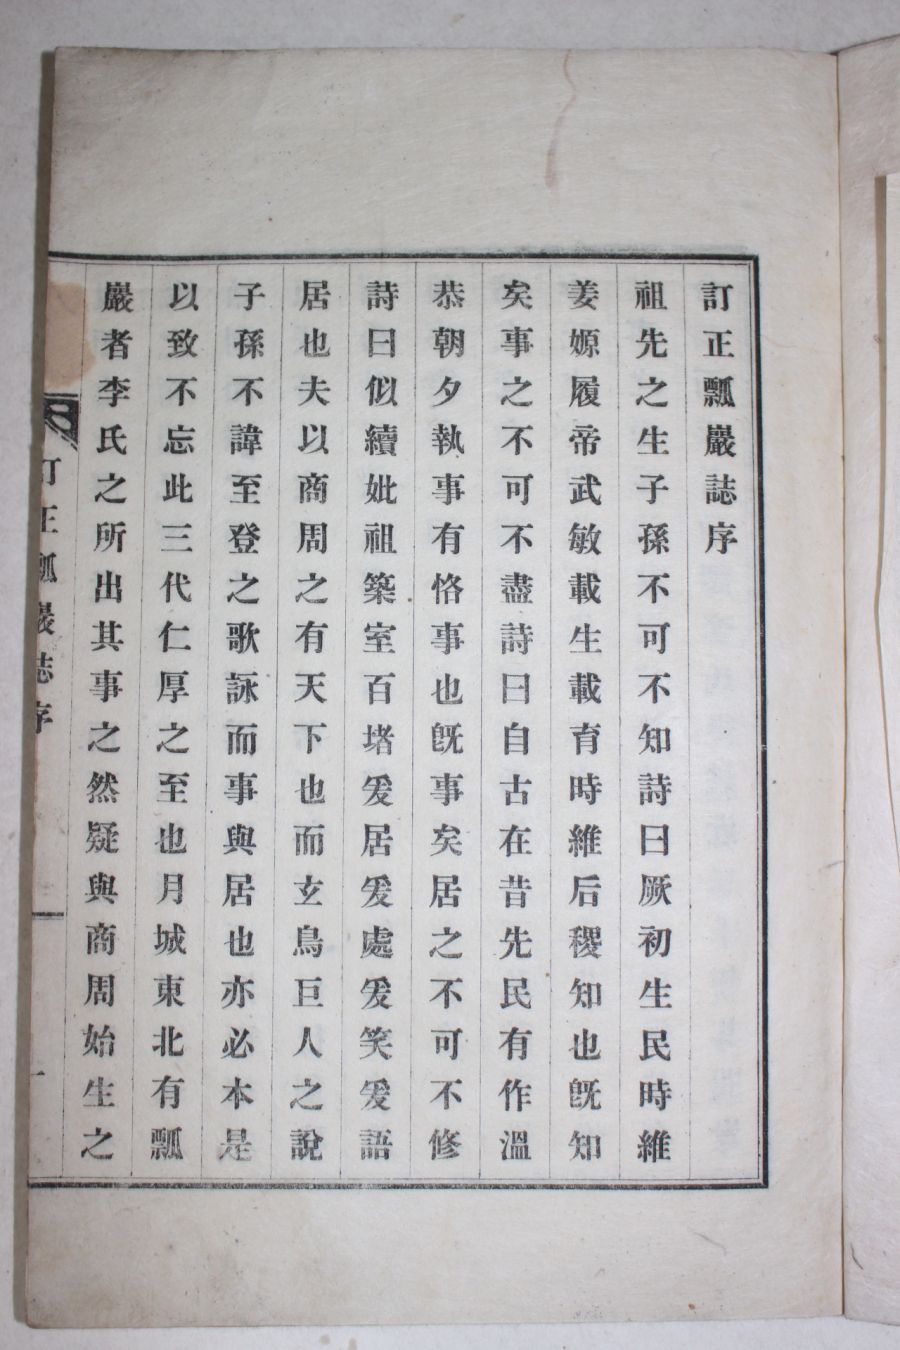 訂正瓢巖誌序
祖先之生子孫不可不知詩曰厥初生民時維
姜嫄履帝武敏載生載育時維后稷知也旣知
矣事之不可不盡詩曰自古在昔先民有作溫
恭朝夕執事有恪事也旣事矣居之不可不修
詩曰似續妣祖築室百堵爰居爰處爰笑爰語
居也夫以商周之有天下也而玄鳥巨人之說
子孫不諱至登之歌詠而事與居也亦必本是
以致不忘此三代仁厚之至也月城東北有瓢
巖者李氏之所出其事之然疑與商周始生之
訂正瓢巖誌序
一